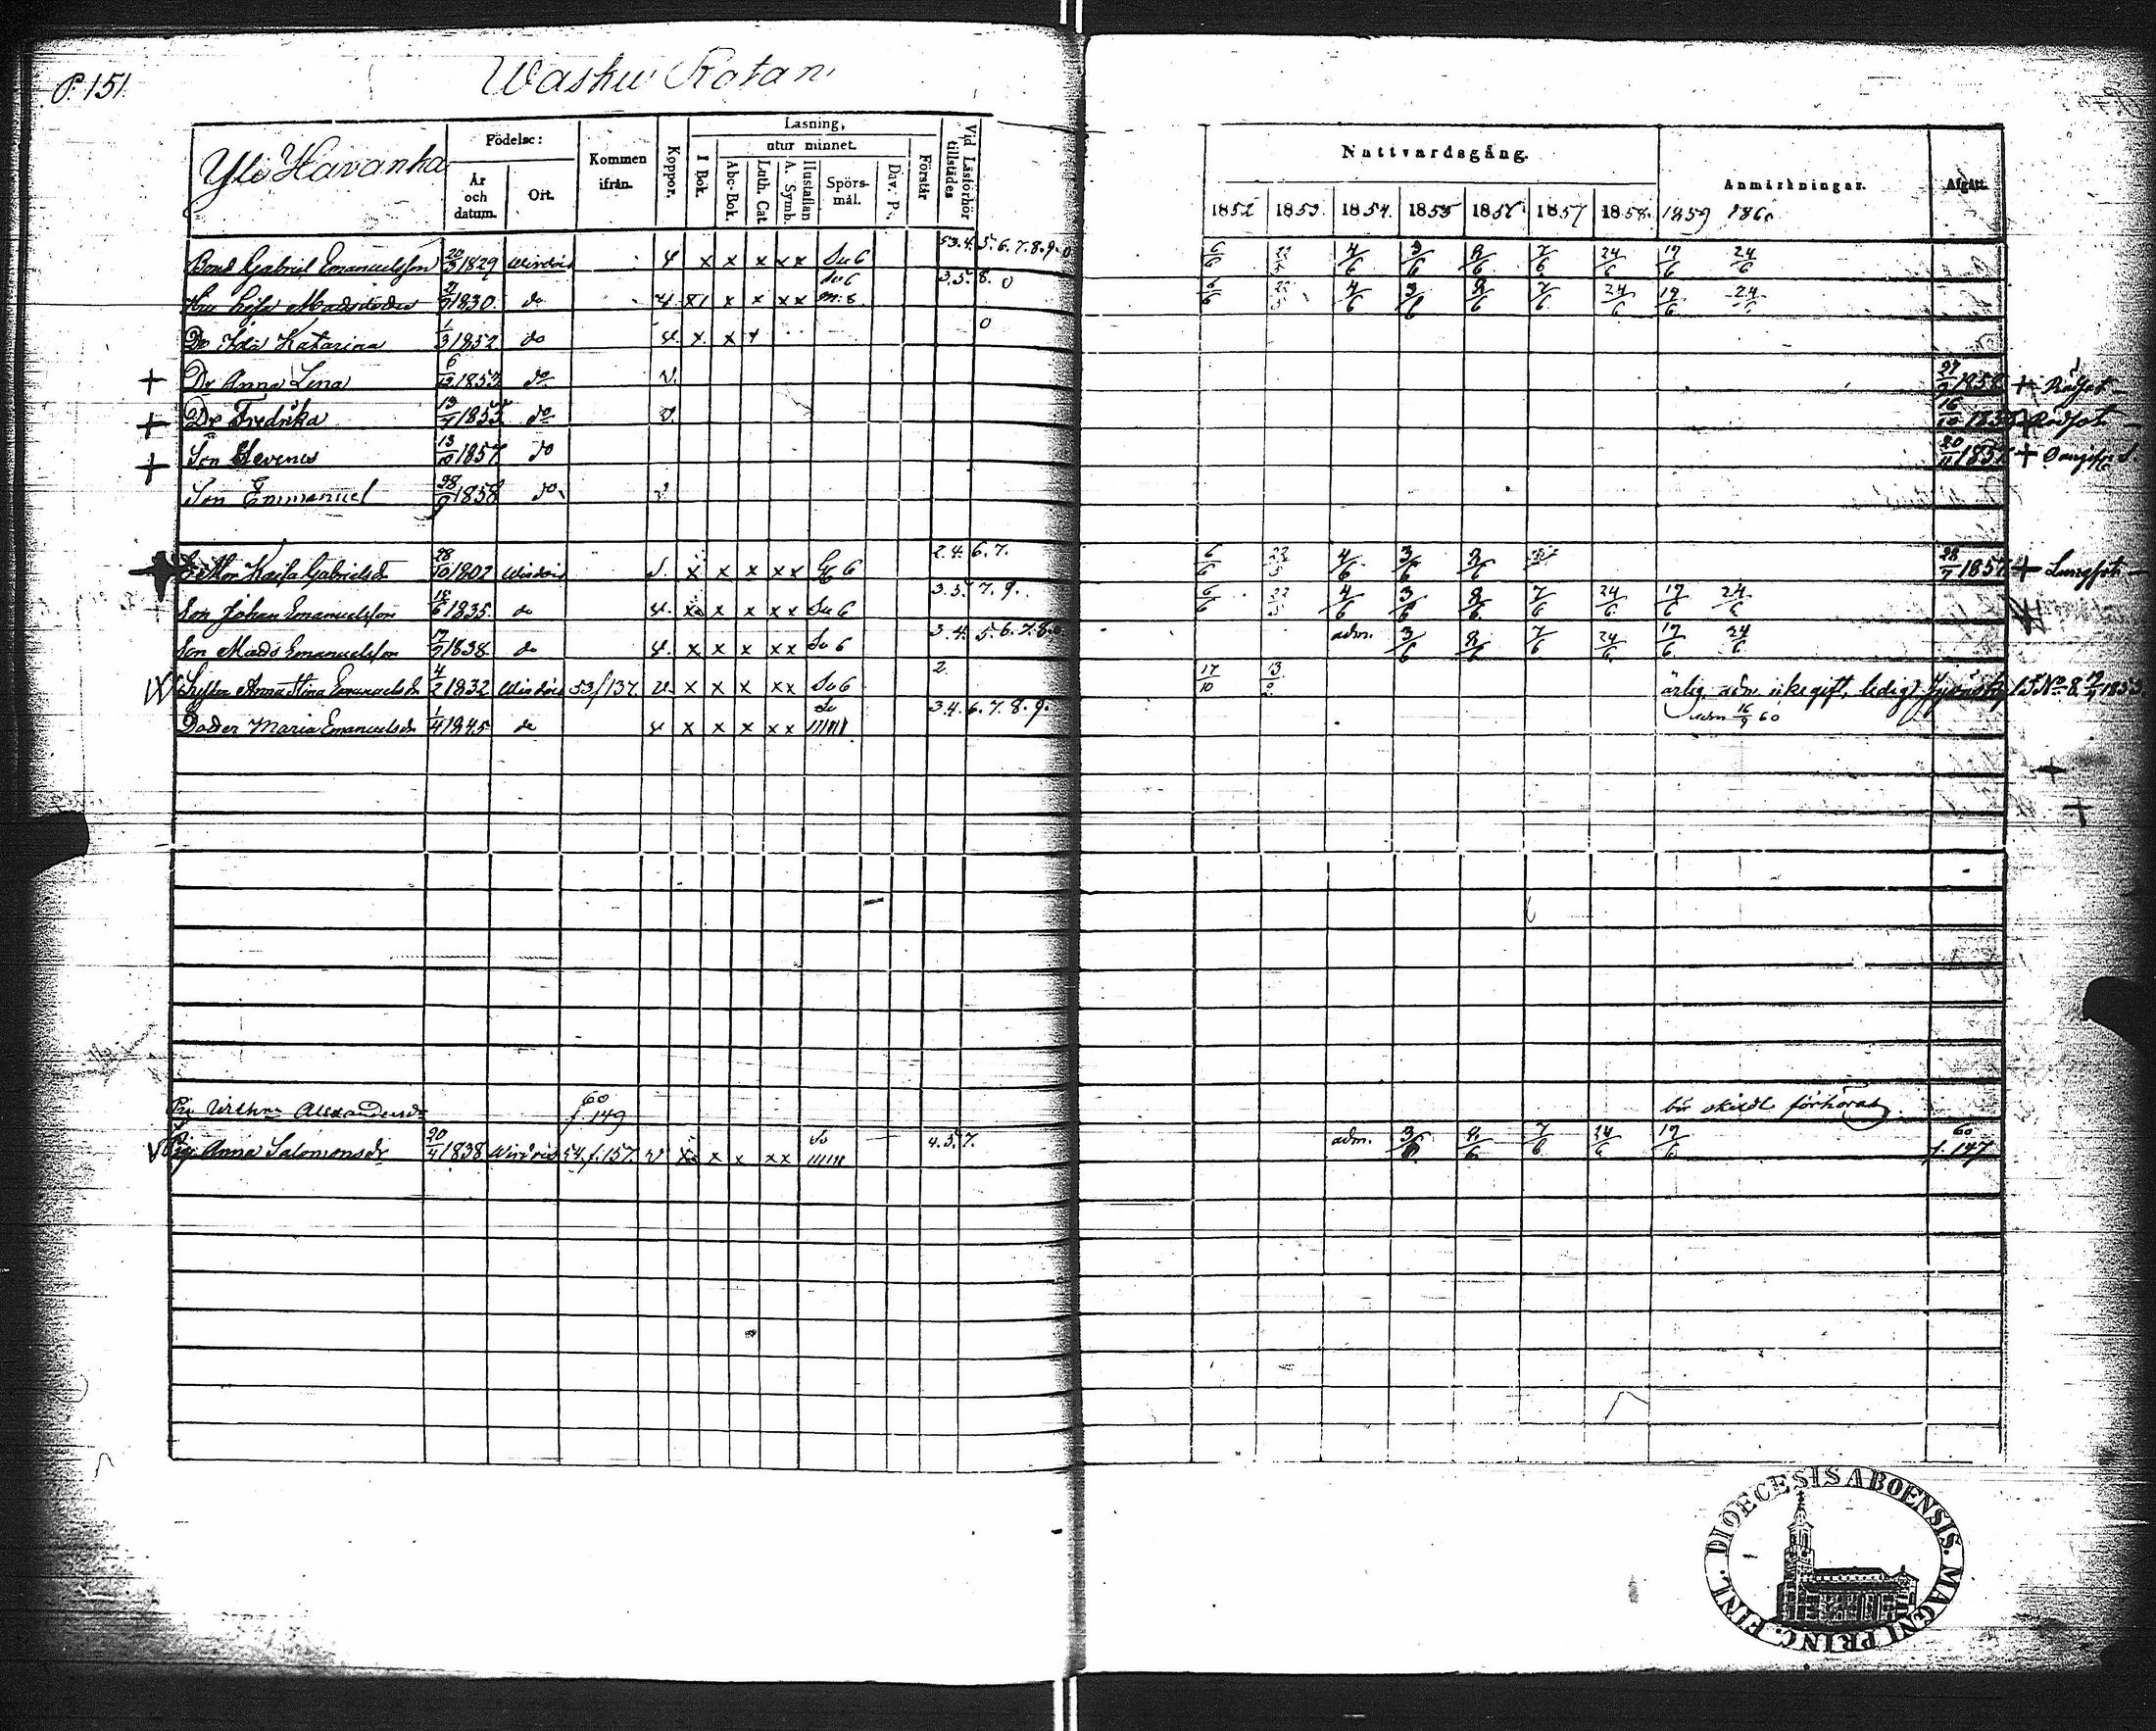 P. 151.
Wasku Rotan
Yli Havanka
Födelse:
År och datum.
Ort.
Kommen ifrån.
Koppor.
Läsning,
utur minnet.
I Bok.
Abc-Bok.
Luth. Cat.
A. Symb.
Hustaflan
Spörsmål.
Div. Ps.
Förstår
Vid Läsförhör tillstädes
Nattvardsgång.
1852 1853. 1854. 1855 1856 1857 1858. 1859 1860
Anmärkningar.
Afgått.
Bond Gabriel Emanuelsson 20/3 1829 Wirdois x x x x x Sv 6 53.4.5.6.7.8.9.0 6/6 22/5 4/6 3/6 8/6 7/6 24/6 19/6 24/6
Hu Kajsa Madsdoder 1830. do x x x x x 3.5.8.0 6/6 22/5 4/6 3/6 8/6 7/6 24/6 19/6 24/6
Dr Ida Katarina 1/3 1852 do x x 0
+ Dr Anna Lena 6/12 1853 do v. 27/9 1858 + Rödsot
+ Dr Fredrika 13/7 1855 do v. 16/10 Rödsot
+ Son 13/10 1857 do 20/11 1857 +
Son Emmanuel 28/9 1858 do
Mor Kaisa Gabrielsd 28/10 1802 Wirdois x x x x x 6 2.4.6.7. 6/6 22/5 4/6 3/6 8/6 28/7 1857 +
Son Johan Emanuelsson 18/6 1835. do x x x x x Sv 6 3.5.7.9. 6/6 22/5 4/6 3/6 8/6 7/6 24/6 19/6 24/6
Son Mads Emanuelsson 1838 do x x x x x Sv 6 3.4.5.6.7.8. adm. 3/6 8/6 7/6 24/6 19/6 24/6
Syster Anna Stina Emanuelsdr 4/2 1832 Wirdois 53/137. v. x x x x x Sv 6 2. 17/10 13/2 ärlig, adm. icke gift, ledig No 8. 1853
Doder Maria Emanuelsdr 1/4 1845 do x x x x x 3.4.6.7.8.9. adm 16/9 60
Pig Alexandersdr 60 f. 149 bör skildt förhöras
V Pig. Anna Salomonsdr 20/4 1838 Wirdois 54. f. 157. v x x x x x 4.5.7. adm. 3/6 8/6 7/6 24/6 19/6 60 f. 147
DIOECESIS ABOENSIS. MAGNI PRINC. FINL.